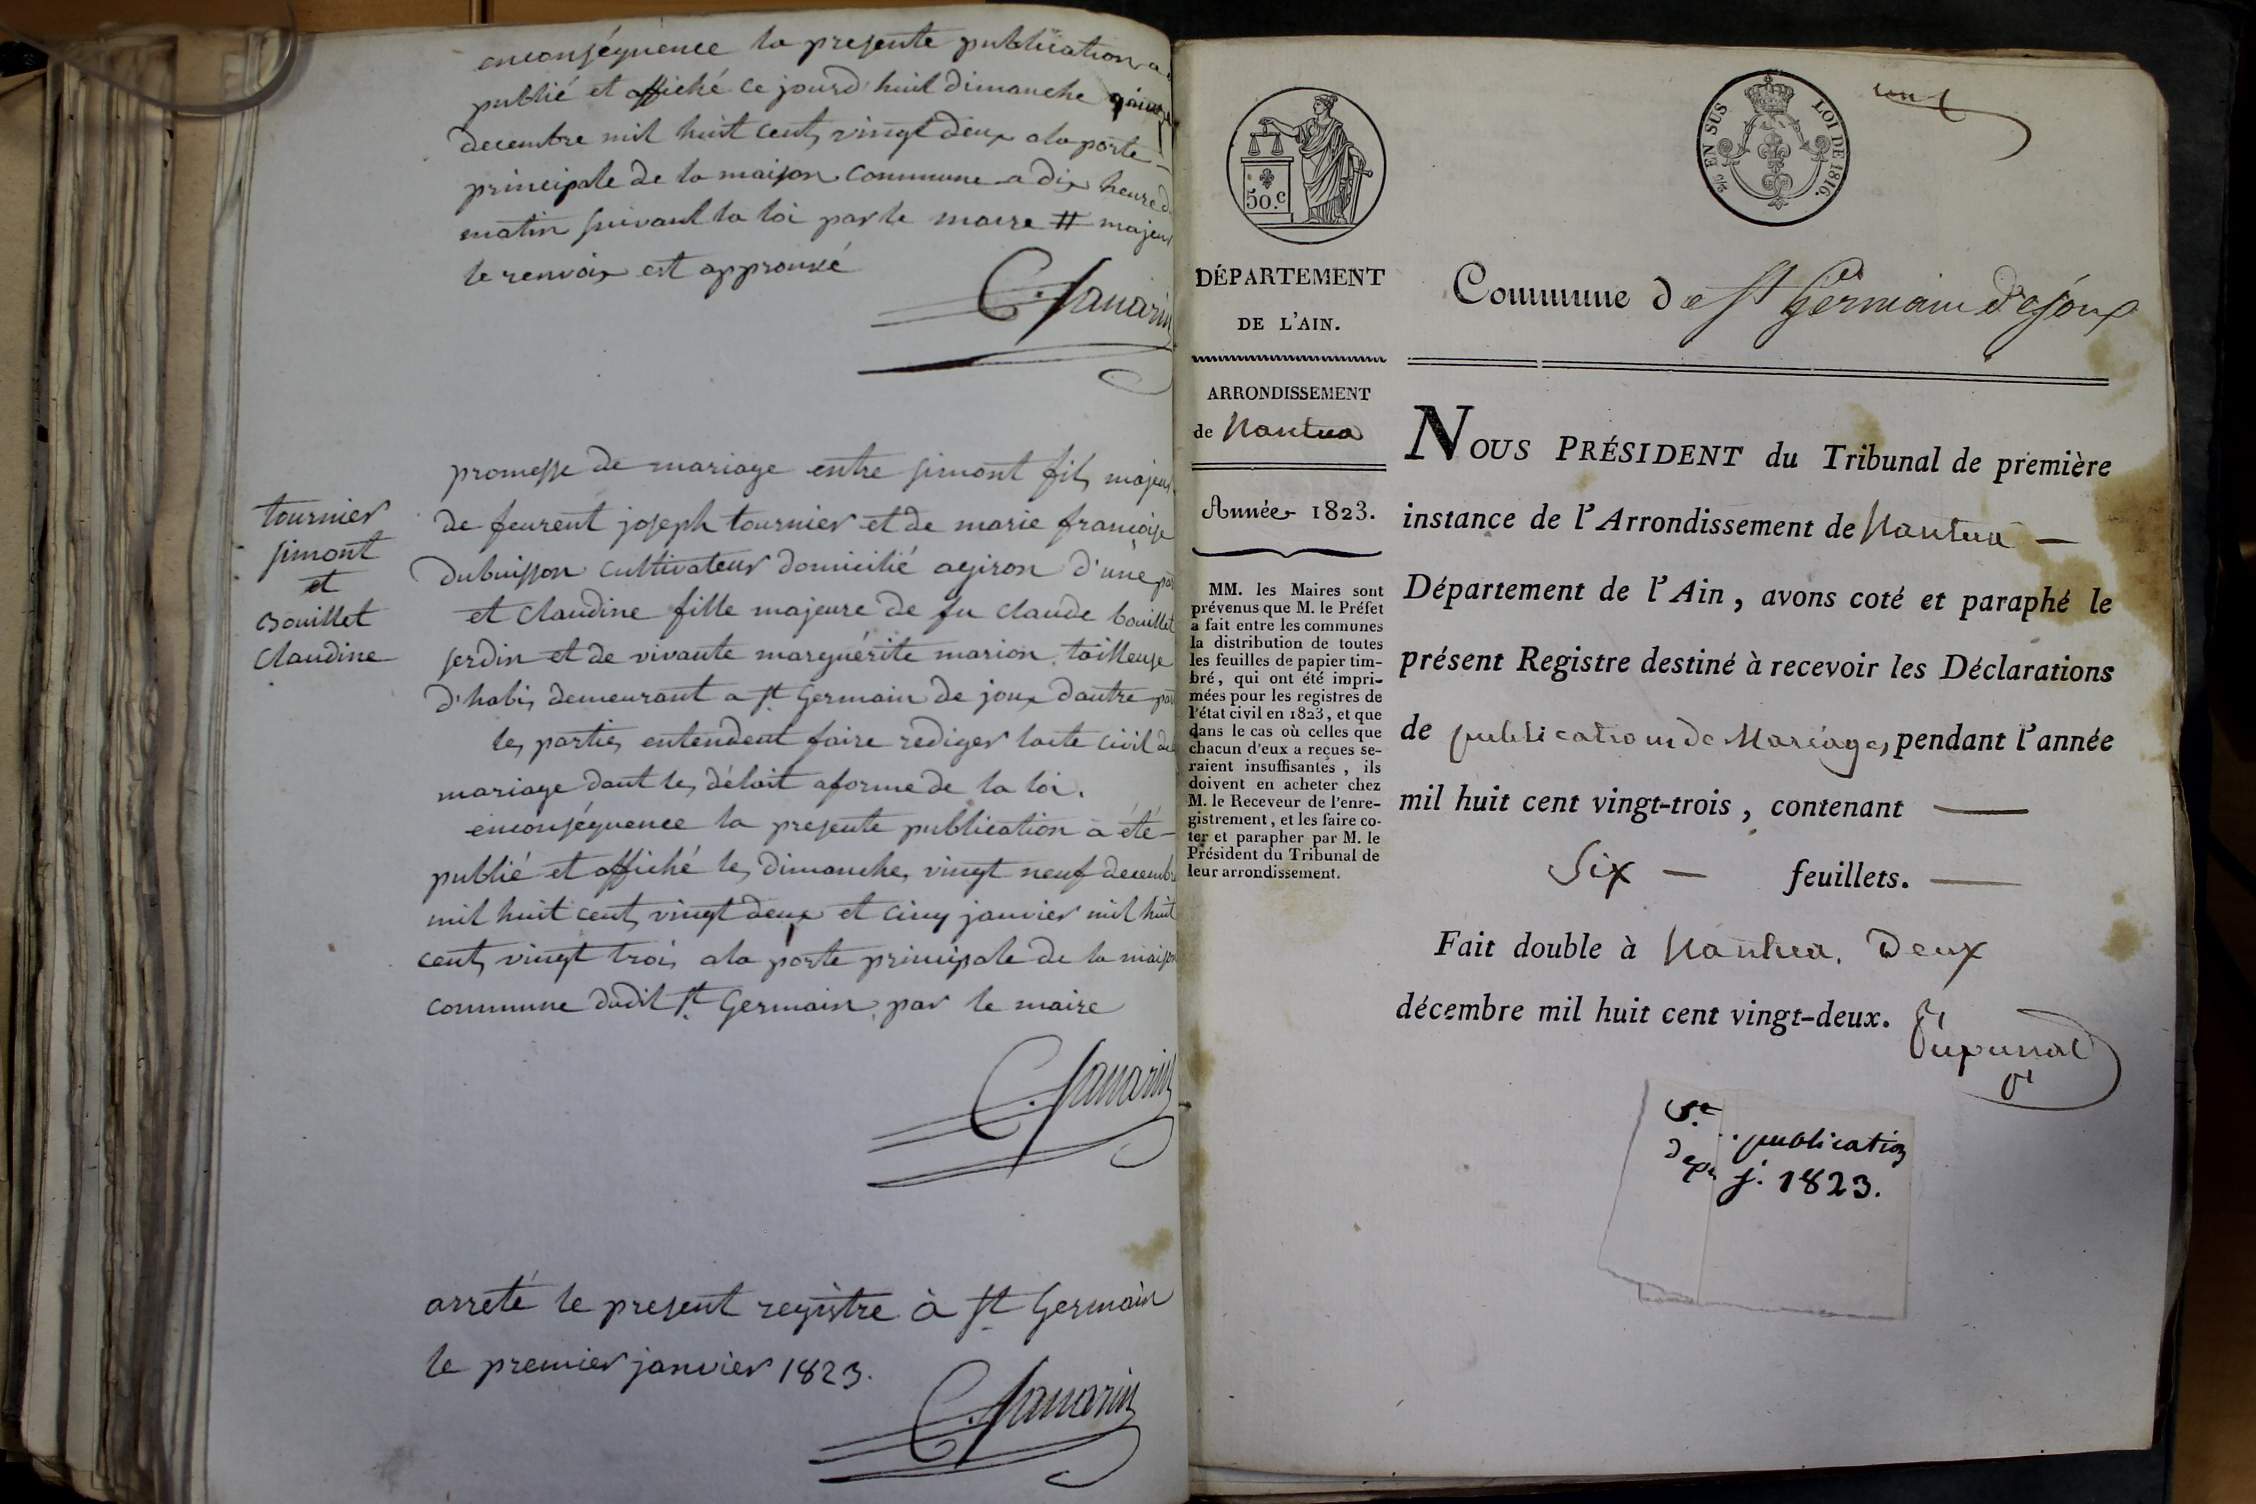 enconséquence la presente publication a
publié et affiché ce jourd'huit dimanche quinze
decembre mil huit cents vingt deux a la porte
principale de la maison Commune a dix heure d
matin suivant la loi par le maire # majeur
le renvoix est approuvé
tournier
simont
et
Bouillet
Claudine
promesse de mariage entre simont fils majeur
de feurent joseph tournier et de marie françoise
Dubuisson cultivateur domicilié agiron d'une part
et Claudine fille majeure de fu Claude bouillet
jerdin et de vivante marguérite marion tailleuse
d'habis demeurant a st Germain de joux dautre part
les parties entendent faire rediger lacte civil de
mariage dant les délait aforme de la loi.
enconséquence la presente publication a été
publié et affiché les dimanches vingt neuf decembre
mil huit cents vingt deux et cinq janvier mil huit
cents vingt trois a la porte principale de la maison
commune dudit st Germain par le maire
arreté le present registre à st Germain
le premier janvier 1823.
50.c
EN SUS LOI DE 1816.
DÉPARTEMENT
DE L'AIN.
ARRONDISSEMENT
de Nantua
Année 1823.
MM. les Maires sont
prévenus que M. le Préfet
a fait entre les communes
la distribution de toutes
les feuilles de papier tim-
bré, qui ont été impri-
mées pour les registres de
l'état civil en 1823, et que
dans le cas où celles que
chacun d'eux a reçues se-
raient insuffisantes, ils
doivent en acheter chez
M. le Receveur de l'enre-
gistrement, et les faire co-
ter et parapher par M. le
Président du Tribunal de
leur arrondissement.
Commune de St Germain de Joux
NOUS PRÉSIDENT du Tribunal de première
instance de l'Arrondissement de Nantua —
Département de l'Ain, avons coté et paraphé le
présent Registre destiné à recevoir les Déclarations
de publications de Mariages, pendant l'année
mil huit cent vingt-trois, contenant —
Six — feuillets. —
Fait double à Nantua, Deux
décembre mil huit cent vingt-deux.
publication
j. 1823.